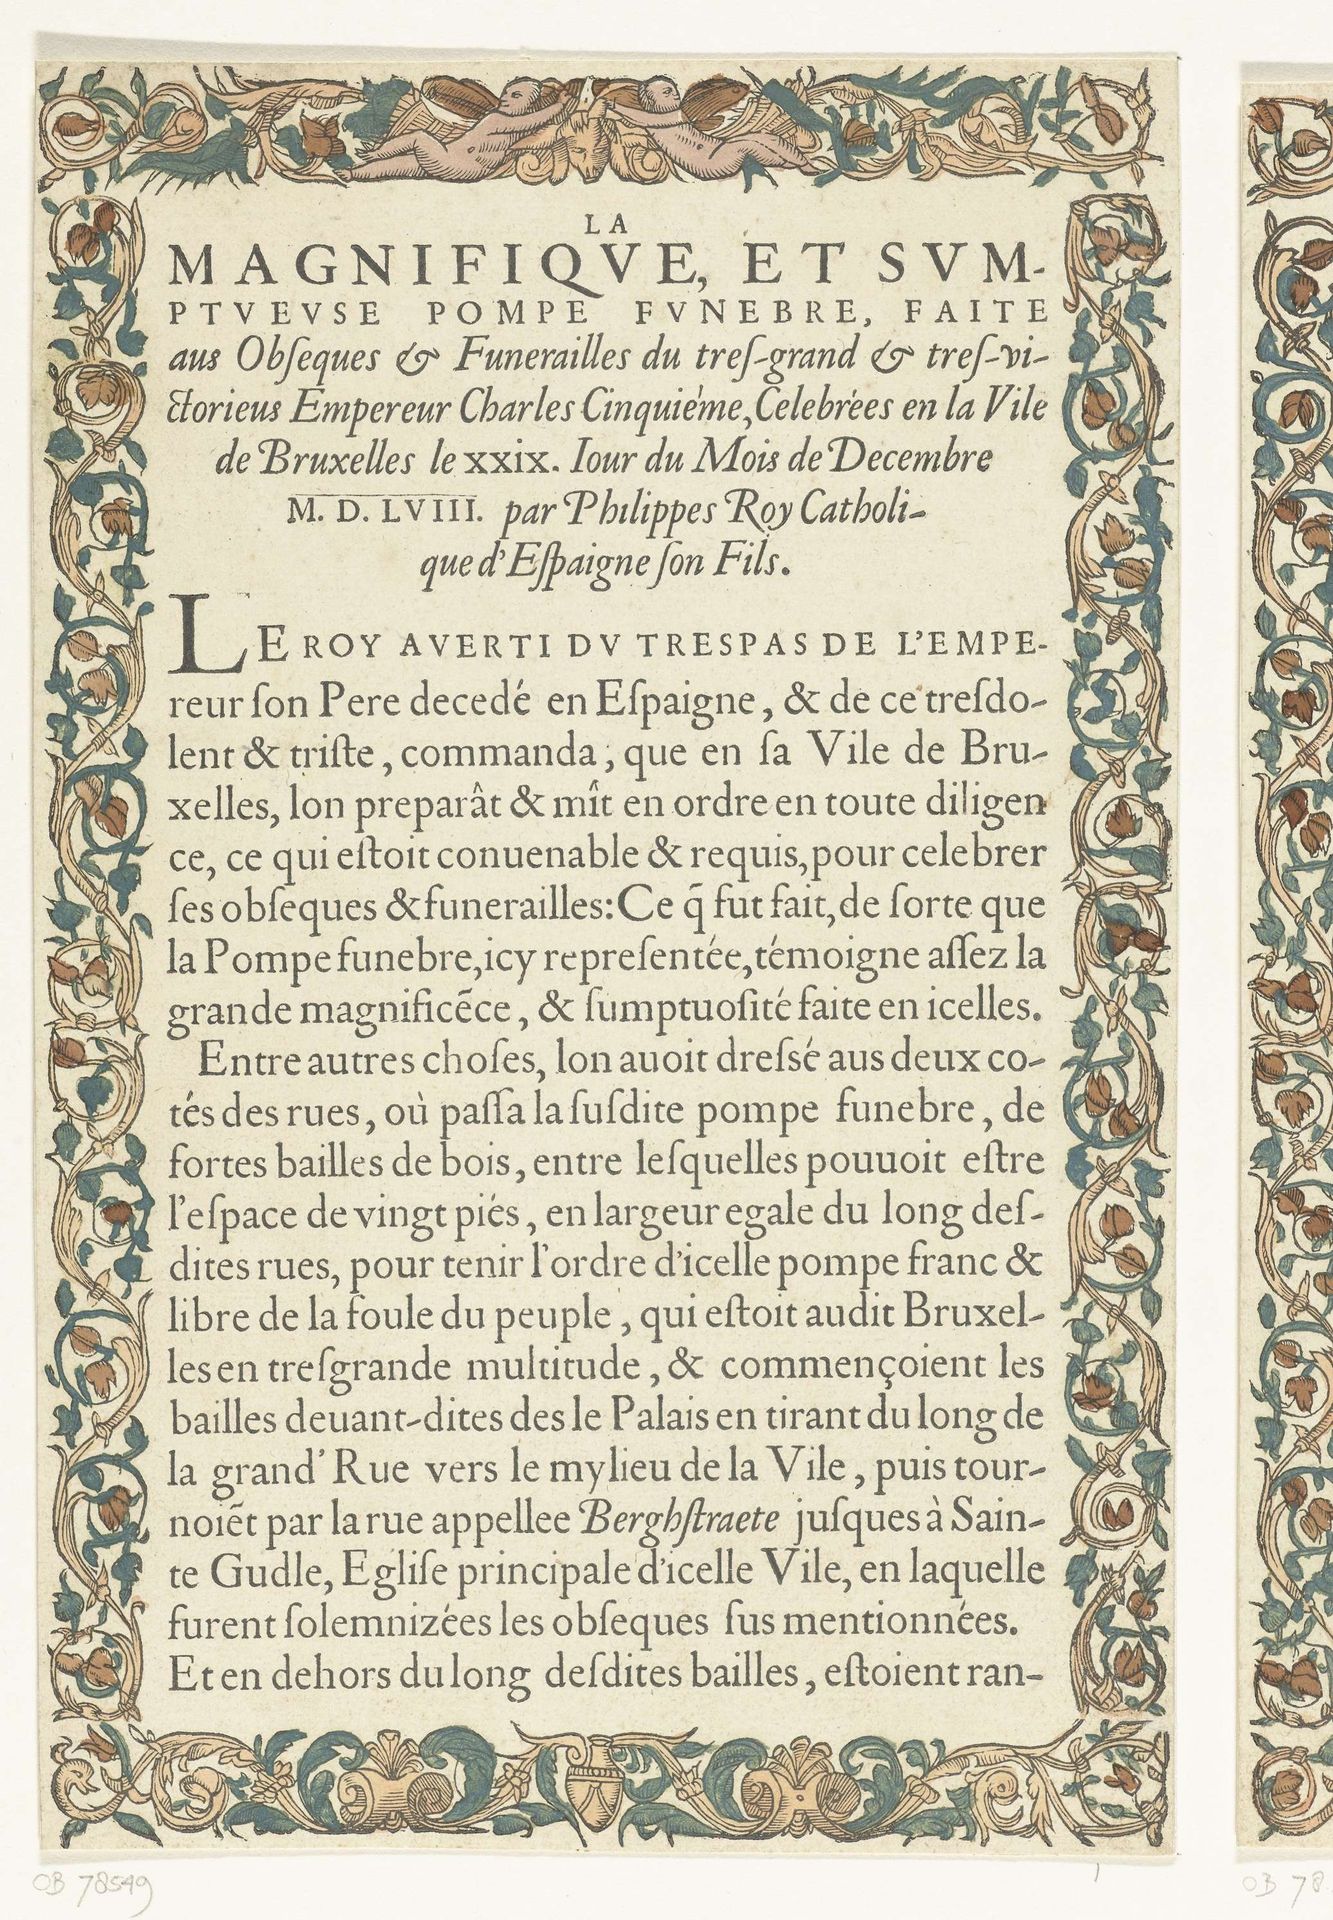 LA
MAGNIFIQVE, ET SVM-
PTVEVSE POMPE FVNEBRE, FAITE
aus Obſeques & Funerailles du treſ-grand & treſ-vi-
ctorieus Empereur Charles Cinquiéme, Celebrées en la Vile
de Bruxelles le xxix. Iour du Mois de Decembre
M. D. LVIII. par Philippes Roy Catholi-
que d'Eſpaigne ſon Fils.
LE ROY AVERTI DV TRESPAS DE L'EMPE-
reur ſon Pere decedé en Eſpaigne, & de ce treſdo-
lent & triſte, commanda, que en ſa Vile de Bru-
xelles, lon preparât & mît en ordre en toute diligen
ce, ce qui eſtoit conuenable & requis, pour celebrer
ſes obſeques & funerailles: Ce q̃ fut fait, de ſorte que
la Pompe funebre, icy repreſentée, témoigne aſſez la
grande magnificẽce, & ſumptuoſité faite en icelles.
Entre autres choſes, lon auoit dreſſé aus deux co-
tés des rues, où paſſa la ſuſdite pompe funebre, de
fortes bailles de bois, entre leſquelles pouuoit eſtre
l'eſpace de vingt piés, en largeur egale du long deſ-
dites rues, pour tenir l'ordre d'icelle pompe franc &
libre de la foule du peuple, qui eſtoit audit Bruxel-
les en treſgrande multitude, & commençoient les
bailles deuant-dites des le Palais en tirant du long de
la grand' Rue vers le mylieu de la Vile, puis tour-
noiẽt par la rue appellee Berghſtraete juſques à Sain-
te Gudle, Egliſe principale d'icelle Vile, en laquelle
furent ſolemnizées les obſeques ſus mentionnées.
Et en dehors du long deſdites bailles, eſtoient ran-
OB 78549
1
OB 78